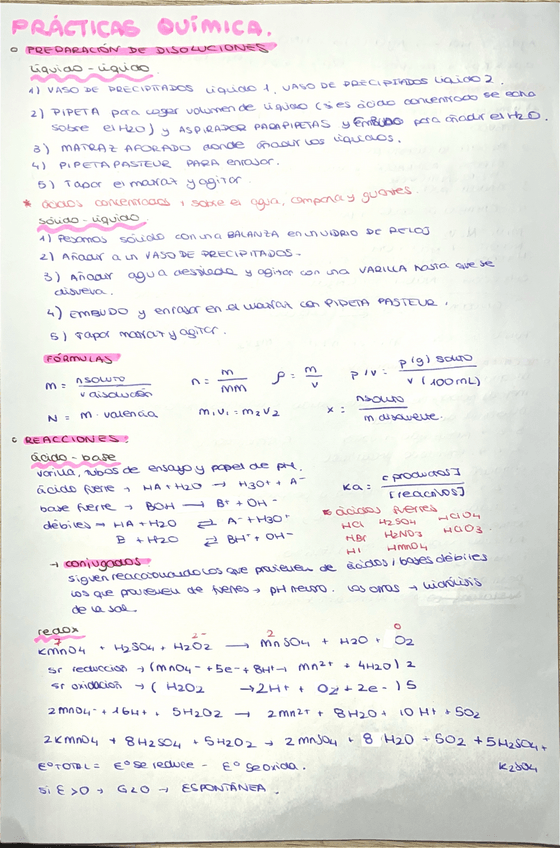 PRÁCTICAS QUÍMICA.
PREPARACIÓN DE DISOLUCIONES
líquido-líquido
1) VASO DE PRECIPITADOS líquido 1, VASO DE PRECIPITADOS líquido 2.
2) PIPETA para coger volumen de líquido (si es ácido concentrado se echa
sobre el H2O) y ASPIRADOR PARA PIPETAS y EMBUDO para añadir el H2O.
3) MATRAZ AFORADO donde añadir los líquidos.
4) PIPETA PASTEUR PARA enrasar.
5) Tapar el matraz y agitar.
* ácidos concentrados: sobre el agua, campana y guantes.
sólido-líquido
1) Pesamos sólido con una BALANZA en un VIDRIO DE RELOJ
2) Añadir a un VASO DE PRECIPITADOS.
3) Añadir agua destilada y agitar con una VARILLA hasta que se
disuelva.
4) EMBUDO y enrasar en el matraz con PIPETA PASTEUR.
5) Tapar matraz y agitar.
FÓRMULAS
m = n soluto / v disolución n = m / MM ρ = m / v p/v = p(g) soluto / v (100mL)
N = m · valencia m1v1 = m2v2 x = n soluto / n disolvente.
REACCIONES:
ácido-base
varilla, tubos de ensayo y papel de pH.
ácido fuerte → HA + H2O → H3O+ + A- Ka = [productos] / [reactivos]
base fuerte → BOH → B+ + OH-
débiles → HA + H2O ⇄ A- + H3O+
B + H2O ⇄ BH+ + OH-
* ácidos fuertes
HCl H2SO4 HClO4
HBr HNO3 HClO3
HI HMnO4
→ conjugados
siguen reaccionando los que provienen de ácidos/bases débiles
los que provienen de fuertes → pH neutro. los otros → hidrólisis
de la sal.
redox
7 2- 2 0
KMnO4 + H2SO4 + H2O2 → MnSO4 + H2O + O2
sr reducción → (MnO4- + 5e- + 8H+ → Mn2+ + 4H2O) 2
sr oxidación → ( H2O2 → 2H+ + O2 + 2e- ) 5
2MnO4- + 16H+ + 5H2O2 → 2Mn2+ + 8H2O + 10H+ + 5O2
2KMnO4 + 8H2SO4 + 5H2O2 → 2MnSO4 + 8 H2O + 5O2 + 5H2SO4 +
K2SO4
E° TOTAL = E° se reduce - E° se oxida.
si E > 0 → G < 0 → ESPONTÁNEA.